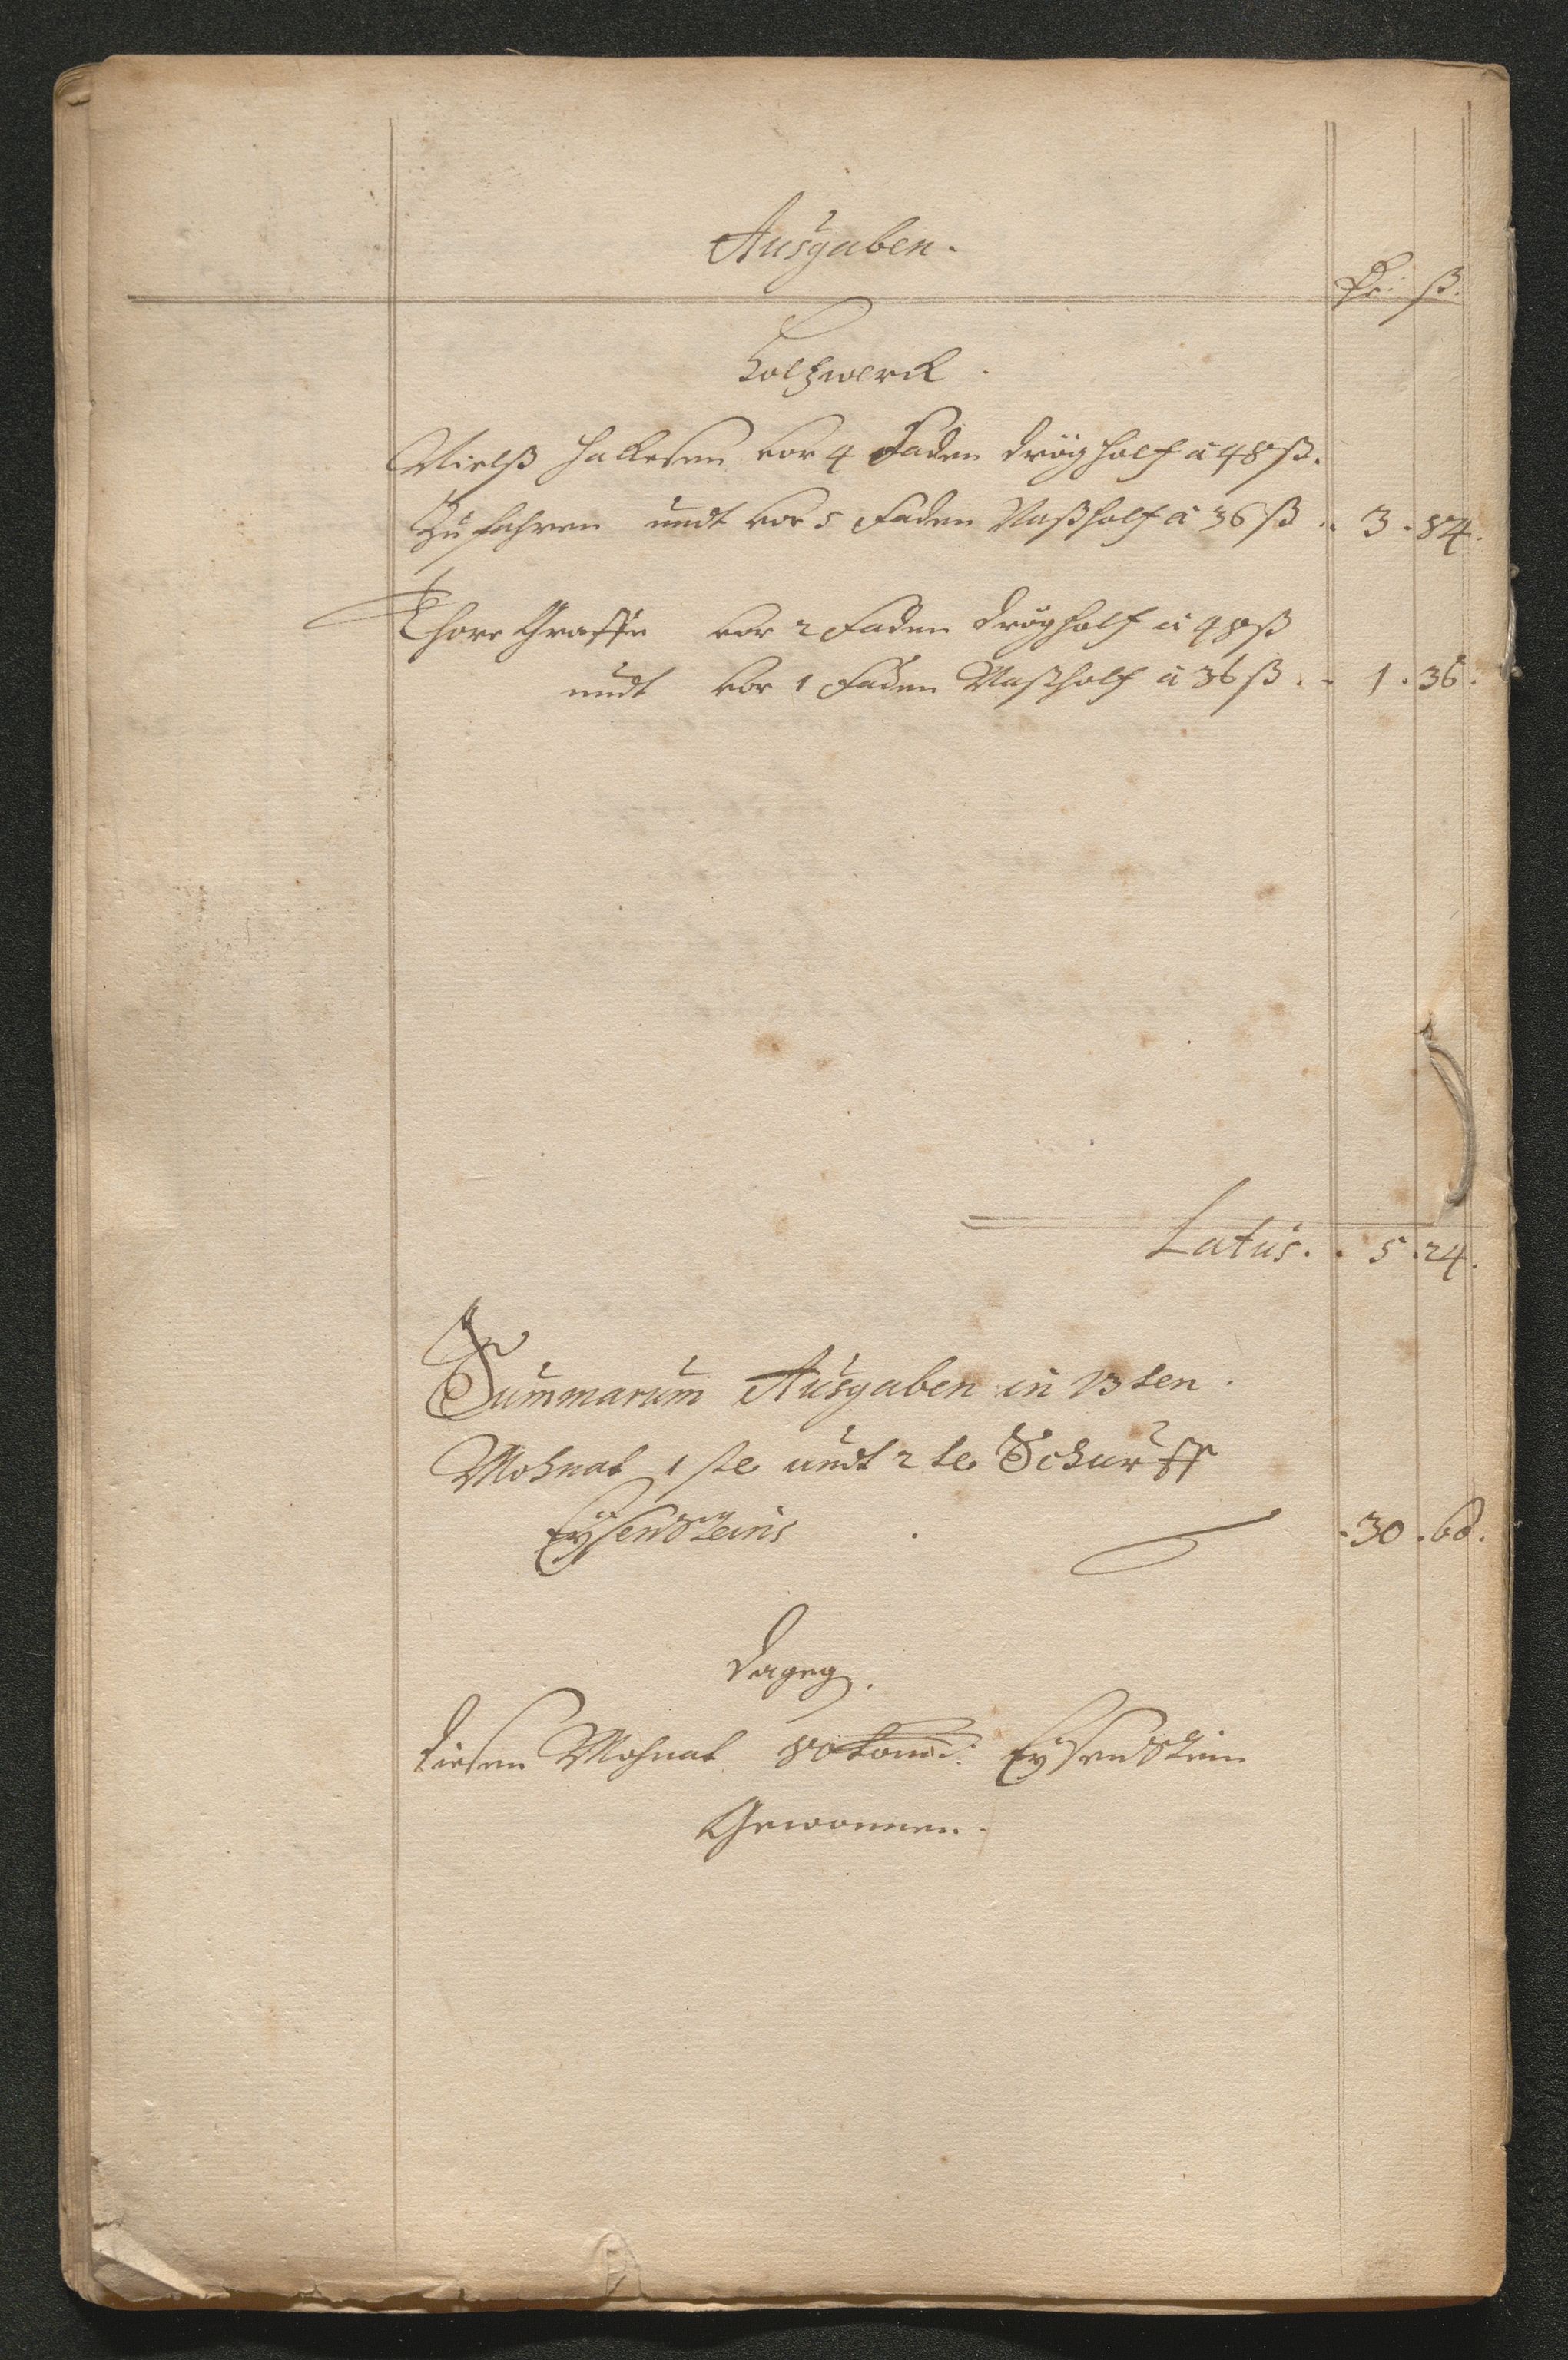 Ausgaben.
ß.
Holtzwerck.
Nielß Hallesen vor 4 Faden drögholtz à 48 ß.
Zu fahren undt vor 5 Faden Naßholtz à 36 ß . 3 . 84.
Thore Graffie vor 2 Faden drögholtz à 48 ß
undt vor 1 Faden Naßholtz à 36 ß . 1 . 36.
Latus . 5 . 24.
Summarum Ausgaben in 13ten.
Mohnat 1ste undt 2te Schurff
Eysensteins 30 . 60.
dageg.
diesen Mohnat 80 Eysenstein
Gewonnen.